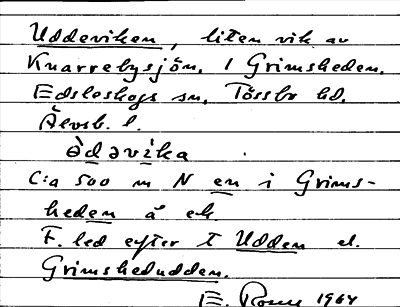 Uddeviken, liten vik av
Knarrebysjön. / Grimsheden.
Edsleskogs sn. Tössbo hd.
Älvsb. l.
ùdəvìka
C:a 500 m N en i Grims-
heden å ek
F. led efter t Udden el.
Grimshedudden.
E. 1964